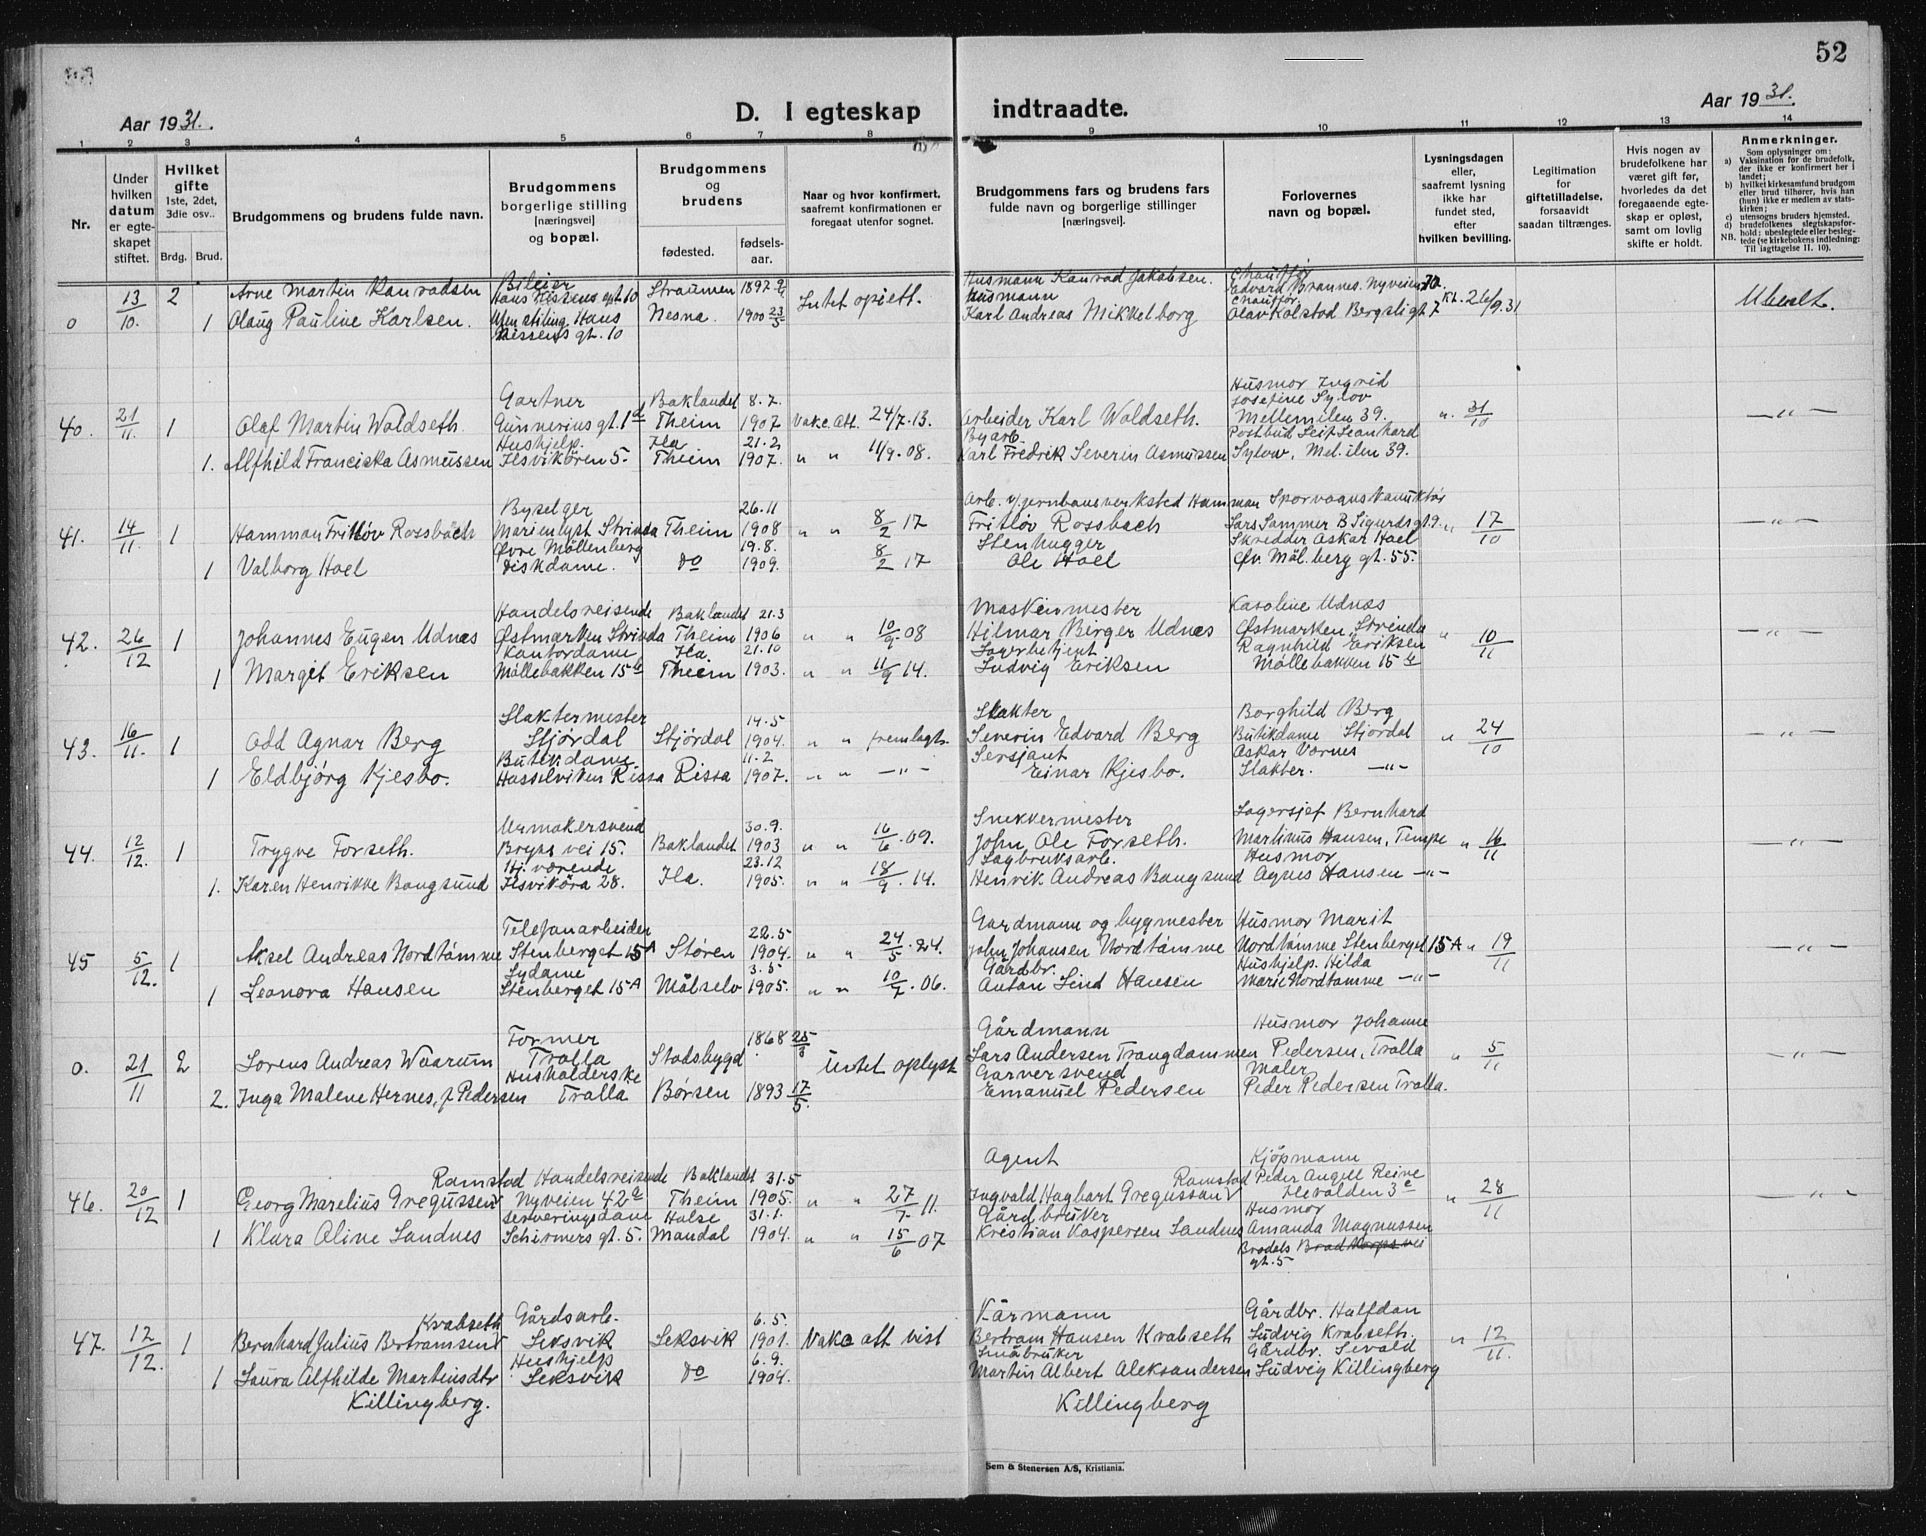 52
Aar 1931.
D. I egteskap indtraadte.
Aar 1931.
1 2 3 4 5 6 7 8 9 10 11 12 13 14
Nr.
Under hvilken datum er egte-skapet stiftet.
Hvilket gifte 1ste, 2det, 3die osv..
Brdg. Brud.
Brudgommens og brudens fulde navn.
Brudgommens borgerlige stilling [næringsvei] og bopæl.
Brudgommens og brudens
fødested. fødsels-aar.
Naar og hvor konfirmert, saafremt konfirmationen er foregaat utenfor sognet.
Brudgommens fars og brudens fars fulde navn og borgerlige stillinger [næringsvei].
Forlovernes navn og bopæl.
Lysningsdagen eller, saafremt lysning ikke har fundet sted, efter hvilken bevilling.
Legitimation for giftetilladelse, forsaavidt saadan tiltrænges.
Hvis nogen av brudefolkene har været gift før, hvorledes da det foregaaende egte-skap er opløst, samt om lovlig skifte er holdt.
Anmerkninger.
Som oplysninger om:
a) Vaksination før de brudefolk, der ikke er konfirmert her i landet;
b) hvilket kirkesamfund brudgom eller brud tilhører, hvis han (hun) ikke er medlem av stats-kirken;
c) utensogns bruders hjemsted.
d) brudefolkenes slegtskapsfor-hold: ubeslegtede eller besleg-tede (se kirkebokens indledning: NB. Til iagttagelse II. 10).
Bileier 1897 Husmann Konrad Jakobsen. Chauffør
13/10. 2 Arne Martin Konradsen Hans Nissens gt. 10 Straumen Intet opl. Husmann Edvard Brannes. Nyveien
0 1 Olaug Pauline Karlsen. Uten stilling Hans Nesna. 1900 23/5 Karl Andreas Mikkelborg Chauffør. Olav Kolstad Bergsligt 7 Kl. 26/9.31 Ubesl.
Nissens gt. 10
Gartner Baklandet 8.7. Husmor Ingrid Josefine Sylow
40. 21/11. 1 Olaf Martin Woldseth. Gunnerius gt. 1 d Theim 1907 Vak.c. Att. 24/7.13. Arbeider Karl Woldseth. Mellemilen 39. " 31/10 —"—
Hushjelp. Ila 21.2 Byarb. Postbud Leif Leonhard
1. Alfhild Franciska Asmussen Ilsvikøren 5. Theim 1907. " " 11/9.08. Karl Fredrik Severin Asmussen Sylow, Mel.ilen 39.
Byselger 26.11 Arb. v/jernbaneverksted Hamman Sporvognskonuktør
41. 14/11. 1 Hamman Fritløv Rossbach Marienlyst Strinda Theim 1908 " " 8/2 17 Fritløv Rossbach Lars Sommer B Sigurdsgt.9. " 17/10 —"—
Øvre Møllenberg 19.8. Stenhugger Skredder Askar Hoel
1 Valborg Hoel Diskdame. do 1909. 8/2 17 Ole Hoel Øv. Møl.berg gt. 55.
Handelsreisende Baklandet 21.3 Maskinmester Karoline Udnæs
42. 26/12 1 Johannes Eugen Udnæs Østmarken Strinda Theim 1906 " " 10/9.08 Hilmar Birger Udnæs Østmarken, Strinda " 10/11 —"—
Kontordame Ila 21.10 Lagerbetjent Ragnhild Eriksen
1 Margit Eriksen Møllebakken 15 b Theim 1903. " " 11/9 14. Ludvig Eriksen Møllebakken 15 b
Slaktermester 14.5 Slakter Borghild Berg
43. 16/11. 1 Odd Agnar Berg Stjørdal Stjørdal 1904. " " fremlagt. Severin Edvard Berg Butikdame Stjørdal " 24/10 —"—
Butikdame 11.2 Sersjant Askar Vornes
1 Eldbjørg Kjesbo. Hasselviken Rissa Rissa 1907. " " —"— Einar Kjesbo. Slakter. —"—
Urmakersvend 30.9. Snekkermester Lagersjef Bernhard
44. 12/12. 1 Trygve Forseth. Bryns vei 15. Baklandet 1903 " " 16/6.09. John Ole Forseth. Martinus Hansen, Tempe " 16/11 —"—
Hj. værende 23.12 Sagbruksarb. Husmor
1. Karen Henrikke Bangsund Ilsvikøra 28. Ila. 1905. " " 18/9.14. Henrik Andreas Bangsund Agnes Hansen —"—
Telefonarbeider 22.5 Gardmann og bygmester Husmor Marit
45 5/12. 1 Aksel Andreas Nordtømme Stenberget 15 A Støren 1904. " " 24/5.24. John Johansen Nordtømme Nordtømme Stenberget 15 A " 19/11 —"—
Sydame 3.5 Gårdbr. Hushjelp. Hilda
1 Leonora Hansen Stenberget 15 A Målselv 1905. " " 10/7.06. Anton Lind Hansen Marie Nordtømme —"—
Former 1868 25/8 Gårdmann Husmor Johanne
0. 21/11 2 Lorens Andreas Waarum Trolla Stadsbygd Intet oplyst Lars Andersen Trangdammen Pedersen, Trolla " 5/11 —"—
Husholderske Garversvend Maler
2. Inga Malene Hernes, f. Pedersen Trolla Børsen 1893 17/5. Emanuel Pedersen Peder Pedersen Trolla.
Ramstad Handelsreisende Baklandet 31.5 Agent Ramstad Kjøpmann Peder Angell Reine
46. 20/12 1 Georg Marelius Gregussen Nyveien 42 a Theim 1905. " " 27/7. 11. Ingvald Hagbart Gregussen Ilevolden 3 c " 28/11 —"—
Serveringsdame Halse 31.1. Gårdbruker Husmor
1 Klara Oline Sandnes Schirmers gt. 5. Mandal 1904. " " 15/6 07 Kristian Kaspersen Sandnes Amanda Magnussen
Brodels gt. 5
Krabseth Gårdsarb. 6.5. Kårmann Gårdbr. Halfdan
47. 12/12. 1 Bernhard Julius Bertramsen Leksvik Leksvik 1901. Vak.c att vist Bertram Hansen Krabseth Ludvig Krabseth. " 12/11.
Hushjelp 6.9. Småbruker Gårdbr. Sevald
1 Laura Alfhilde Martinsdtr Leksvik do 1904. Martin Albert Aleksandersen Ludvig Killingberg
Killingberg. Killingberg
Sem & Stenersen A/S, Kristiania.